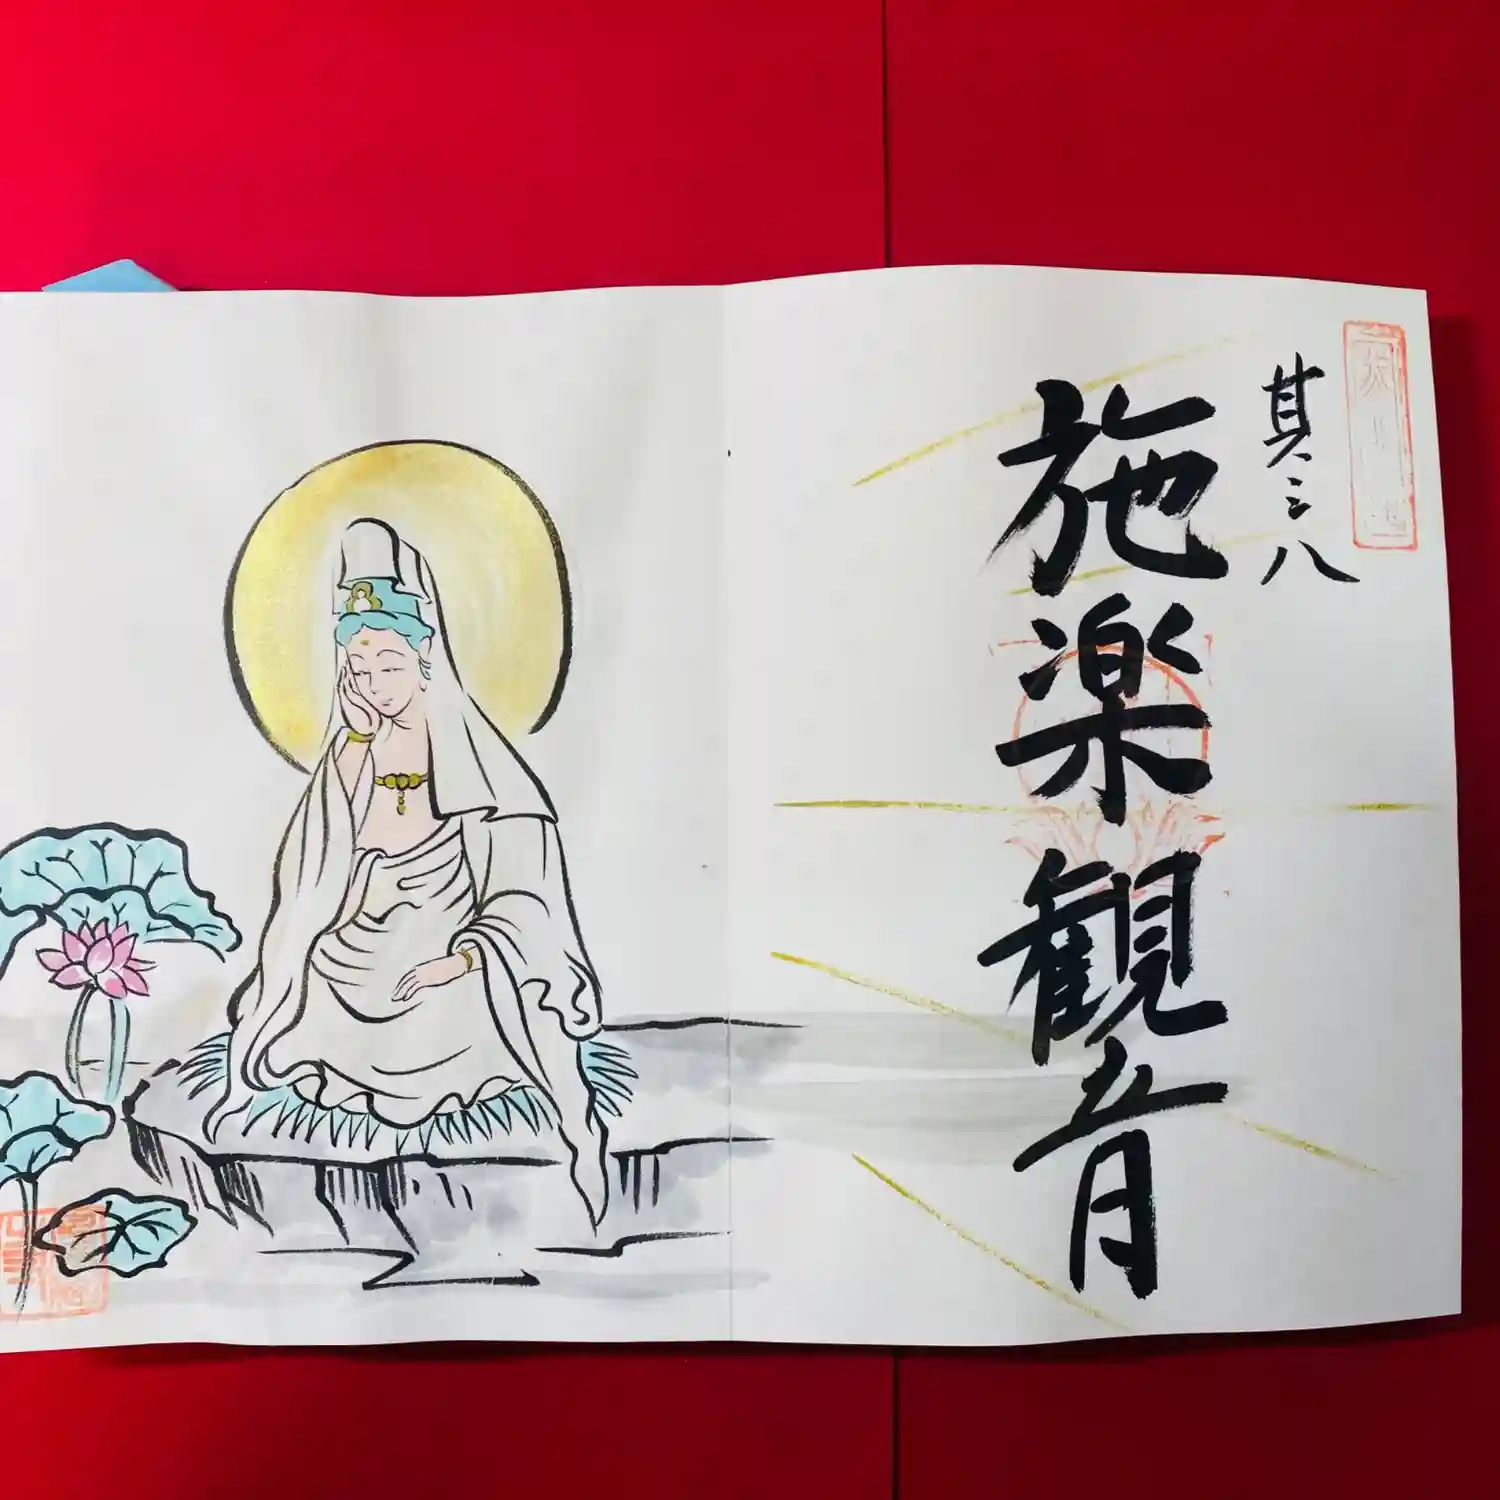 其三八
施楽観音